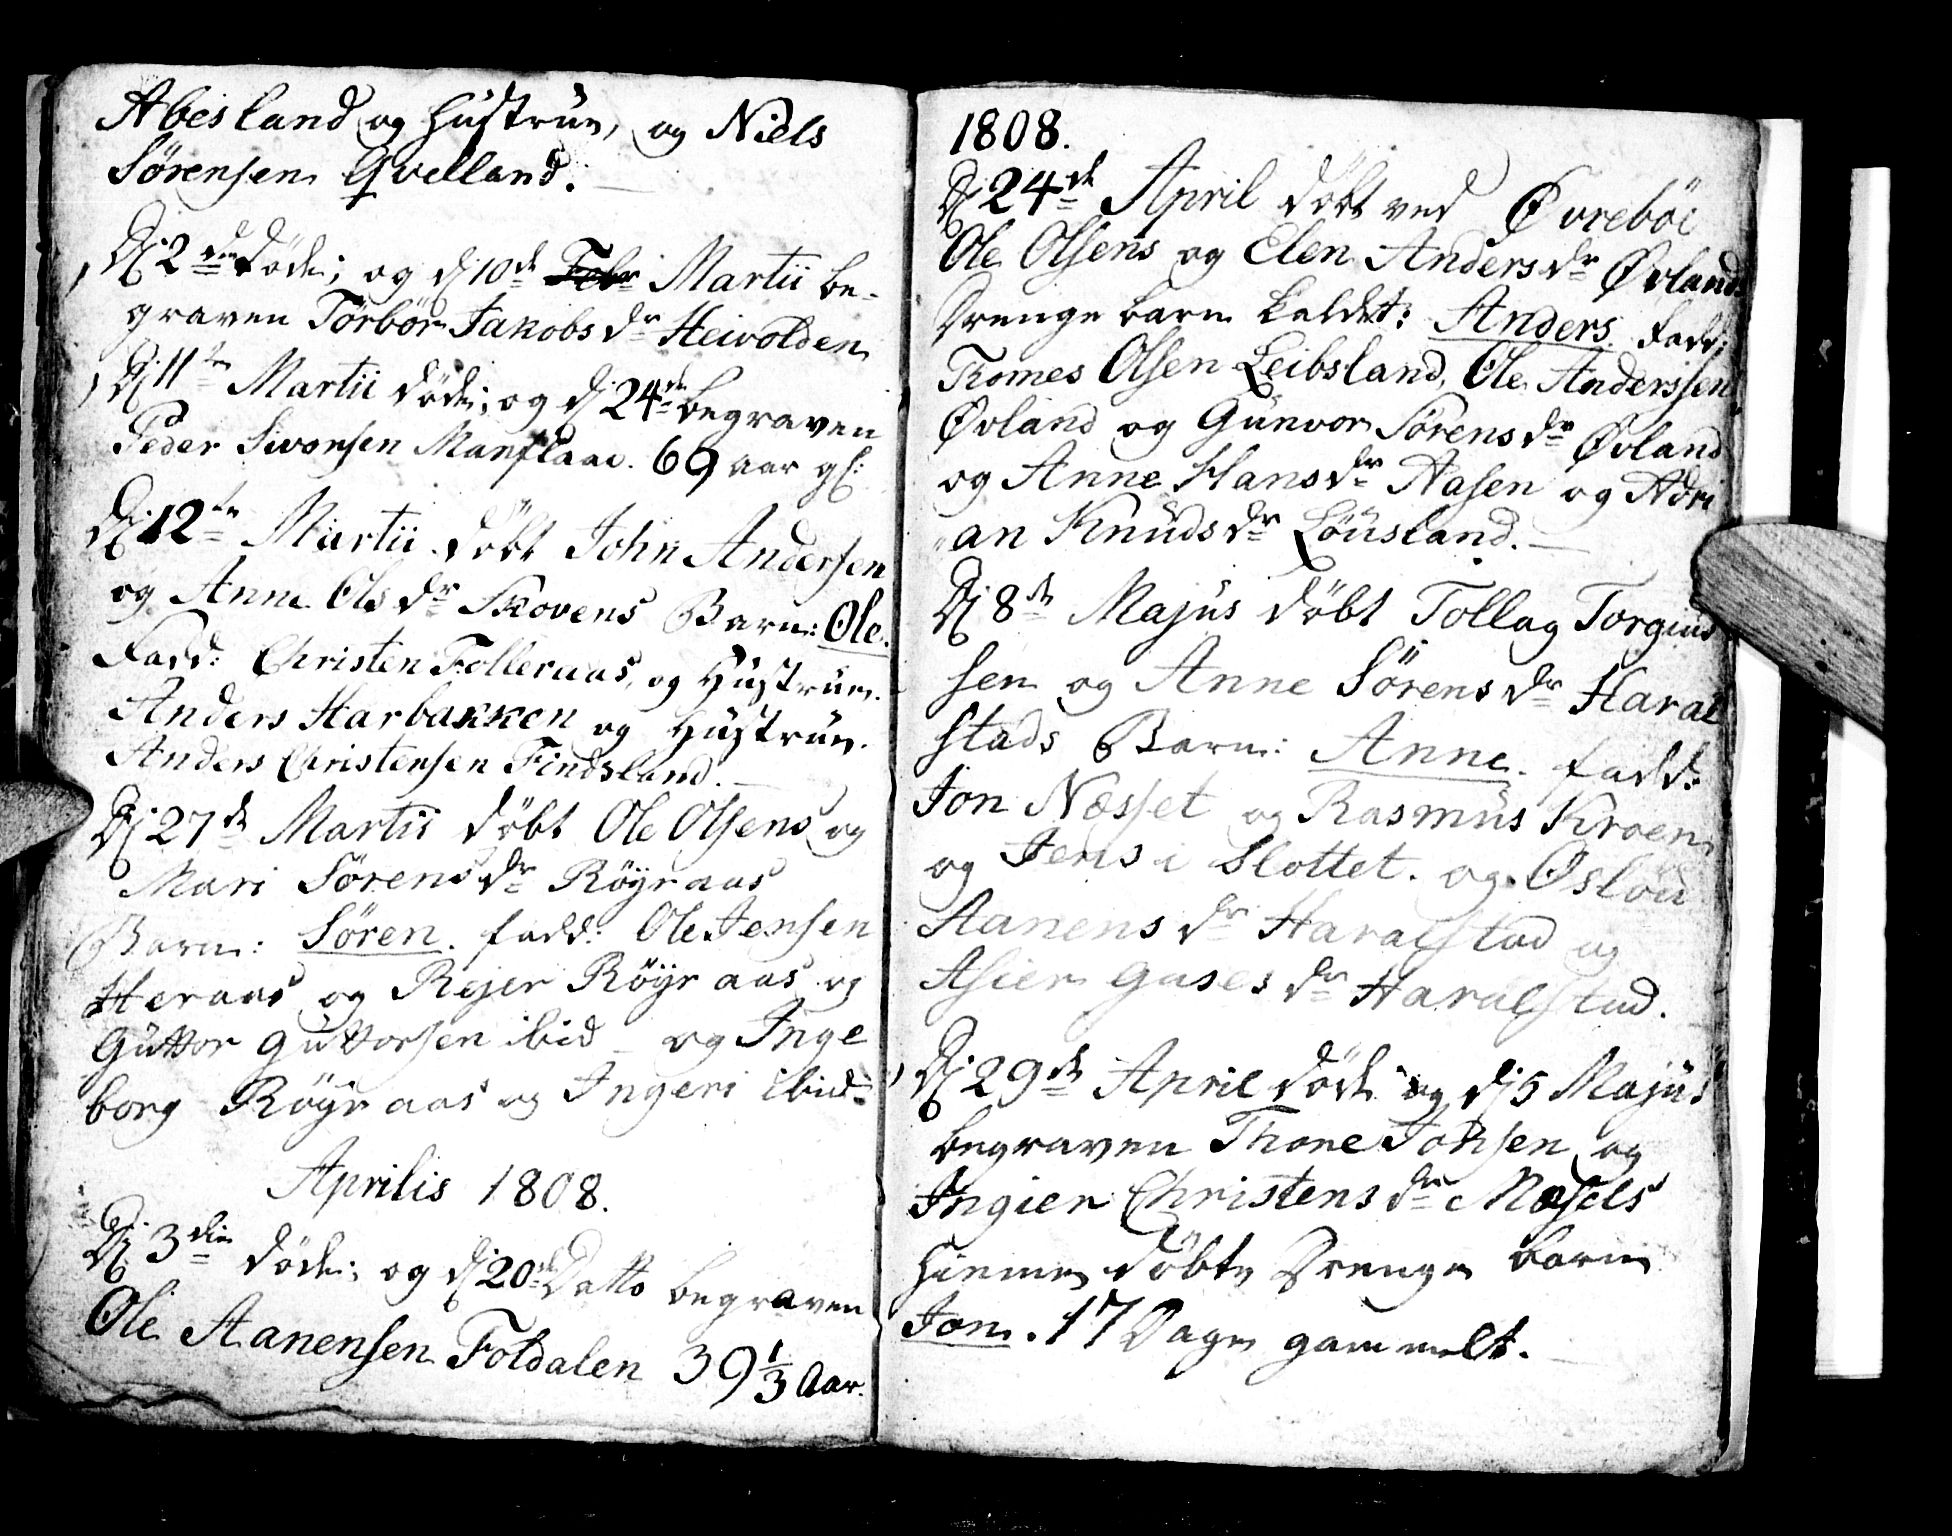 Abesland og Hustrue, og Niels
Sørensen Qvelland.
D. 2den døde; og d. 10de Febr Martii be-
graven Törbör Jakobs dr Heivolden
D. 11te Martii døde; og d. 24de begraven
Peder Sivonsen Manflaae. 69 aar gl:
D. 12te Martii döbt John Andersen
og Anne Ols dr Skovens Barn: Ole.
Fadd: Christen Folleraas, og Hustrue.
Anders Harbakken og Hustrue.
Anders Christensen Findsland.
D. 27de Martii døbt Ole Olsens og
Mari Sørens dr Röyraas
Barn: Søren. fadd: Ole Jensen
Heraas og Rejer Röyraas og
Guttor Guttorsen ibid og Inge
borg Röyraas og Ingeri ibid:
Aprilis 1808.
D. 3die døde; og d. 20de Datto begraven
Ole Aanensen Foldalen 39 1/3 Aar.
1808.
D. 24de April döbt ved Øvreböe
Ole Olsens og Elen Anders dr Øvlands
Drenge barn kaldet: Anders. fadd:
Tomes Olsen Leibsland, Ole Anderssen
Øvland og Gunvor Sörens dr Øvland
og Anne Hans dr Aasen og Adri
an Knuds dr Löusland.
D. 8de Majus döbt Tollag Torgius
sen og Anne Sørens dr Haral
stads Barn: Anne. fadd:
Jon Næsset og Rasmus Kroen
og Jens i Slottet. og Oslöu
Aanens dr Haralstad og
Asier Gases dr Haralstad.
D. 29de April døde og d. 5 Majus
begraven Thore Johsen og
Ingier Christens dr Mæsels
hiemme döbte Drenge barn
Jon. 17 Dage gammelt.